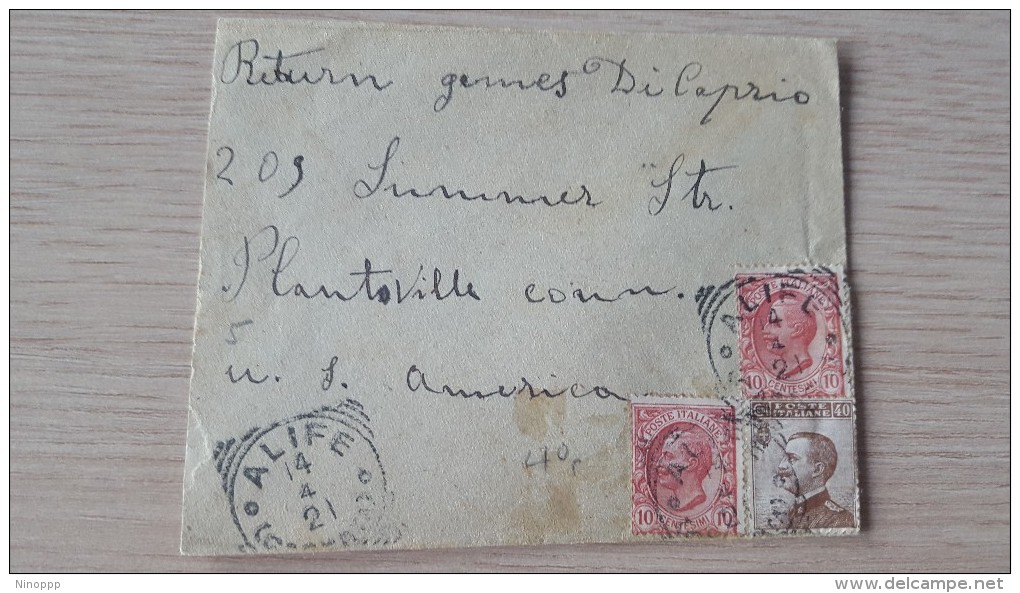 Return games Di Caprio
209 Summer Str.
Plantsville conn.
5
u. s. america
40
ALIFE
ALIFE
POSTE ITALIANE
10 CENTESIMI 10
POSTE ITALIANE
10 CENTESIMI 10
POSTE ITALIANE 40
Ninoppp
www.delcampe.net